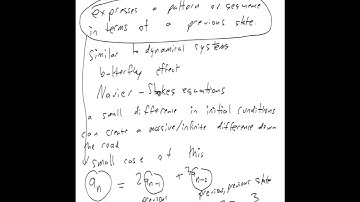 expresses a pattern or sequence
in terms of a previous state.
Similar to dynamical systems
butterfly effect
Navier-Stokes equations
a small difference in initial conditions
can create a massive/infinite difference down
the road
small case of this
aₙ = 2aₙ₋₁ + 3aₙ₋₂
previous previous, previous state
= 3